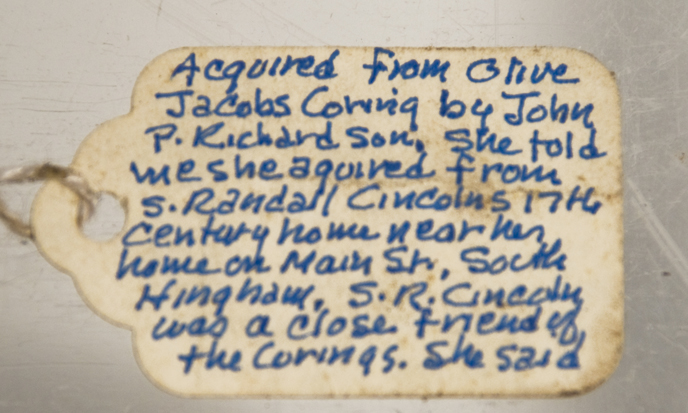 Acquired from Olive
Jacobs Coring by John
P. Richardson. She told
me she aquired from
S. Randall Lincolns 17th
Century home near her
home on Main St., South
Hingham. S. R. Lincoln
was a close friend of
the Corings. She said